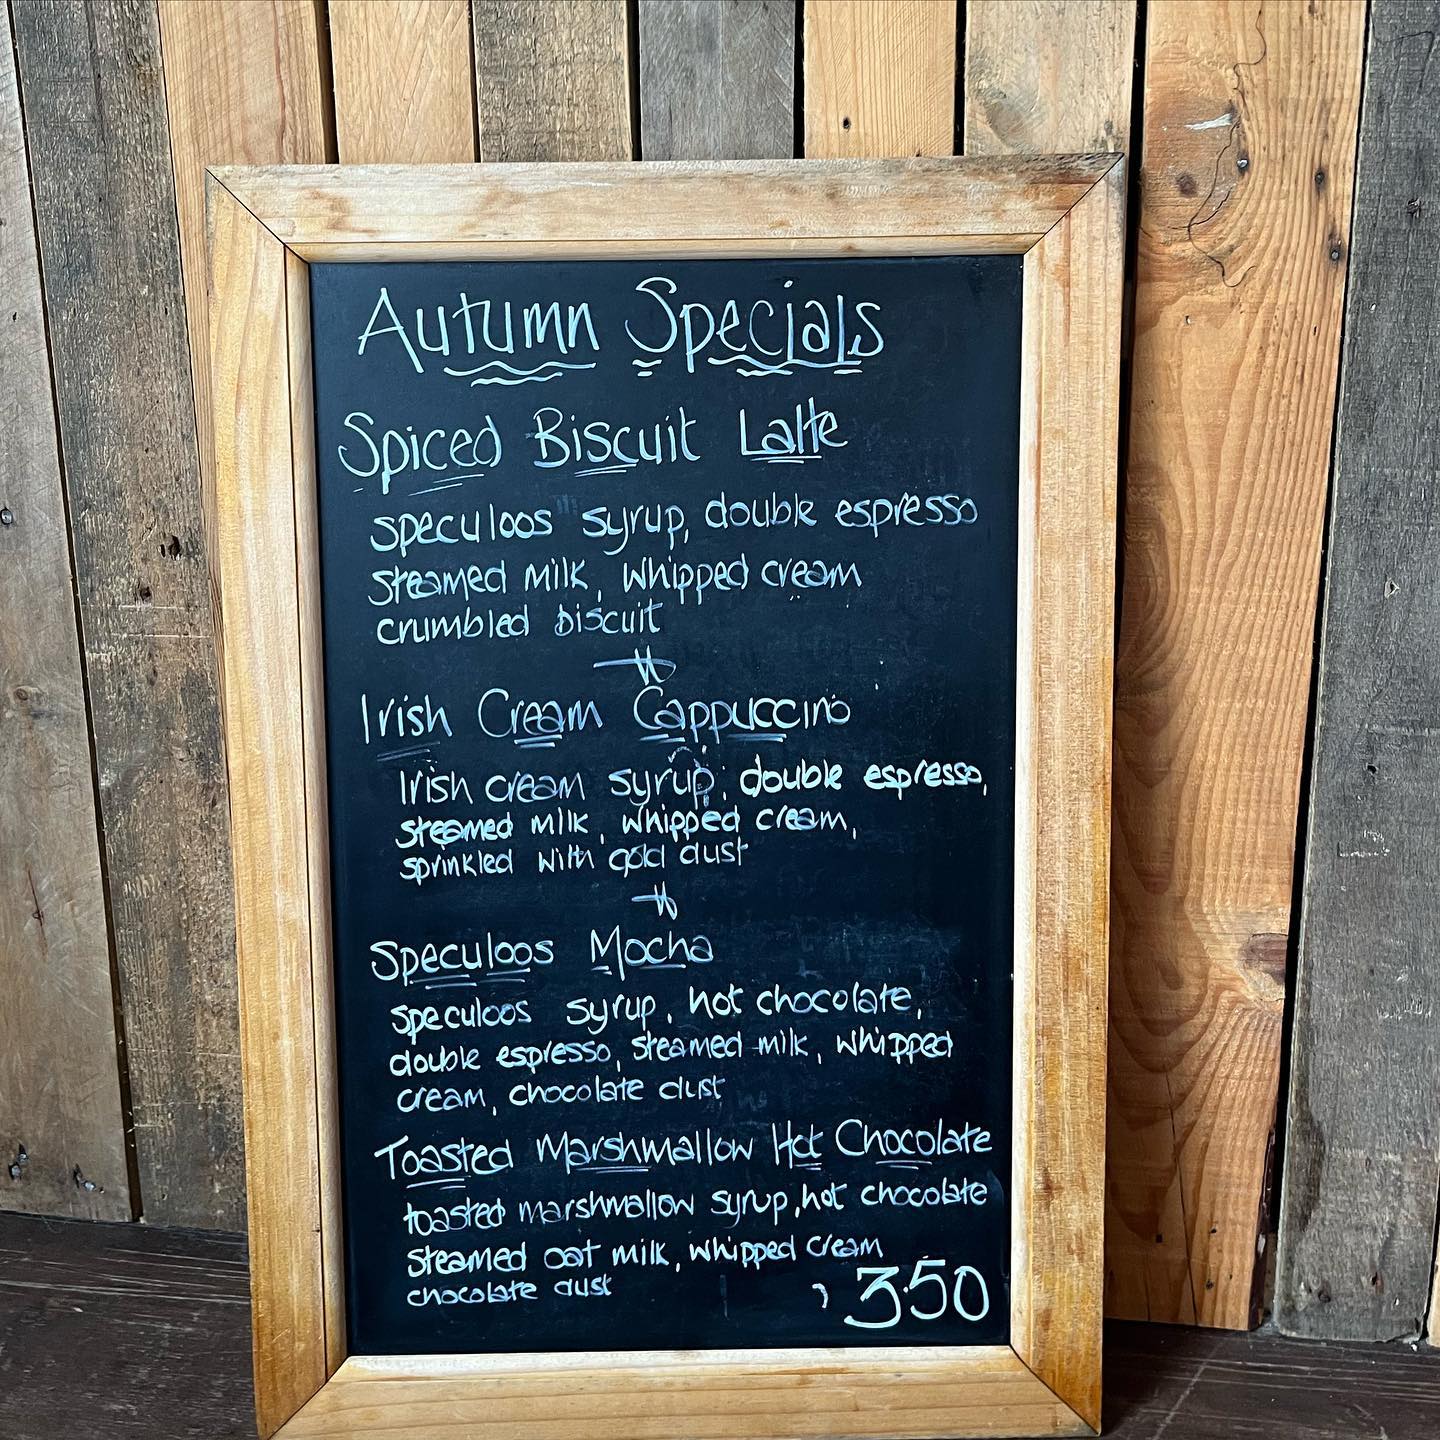 Autumn Specials
Spiced Biscuit Latte
speculoos syrup, double espresso
steamed milk, whipped cream
crumbled biscuit
Irish Cream Cappuccino
Irish cream syrup, double espresso,
steamed milk, whipped cream,
sprinkled with gold dust
Speculoos Mocha
speculoos syrup, hot chocolate,
double espresso, steamed milk, whipped
cream, chocolate dust
Toasted Marshmallow Hot Chocolate
toasted marshmallow syrup, hot chocolate
steamed oat milk, whipped cream
chocolate dust
3.50